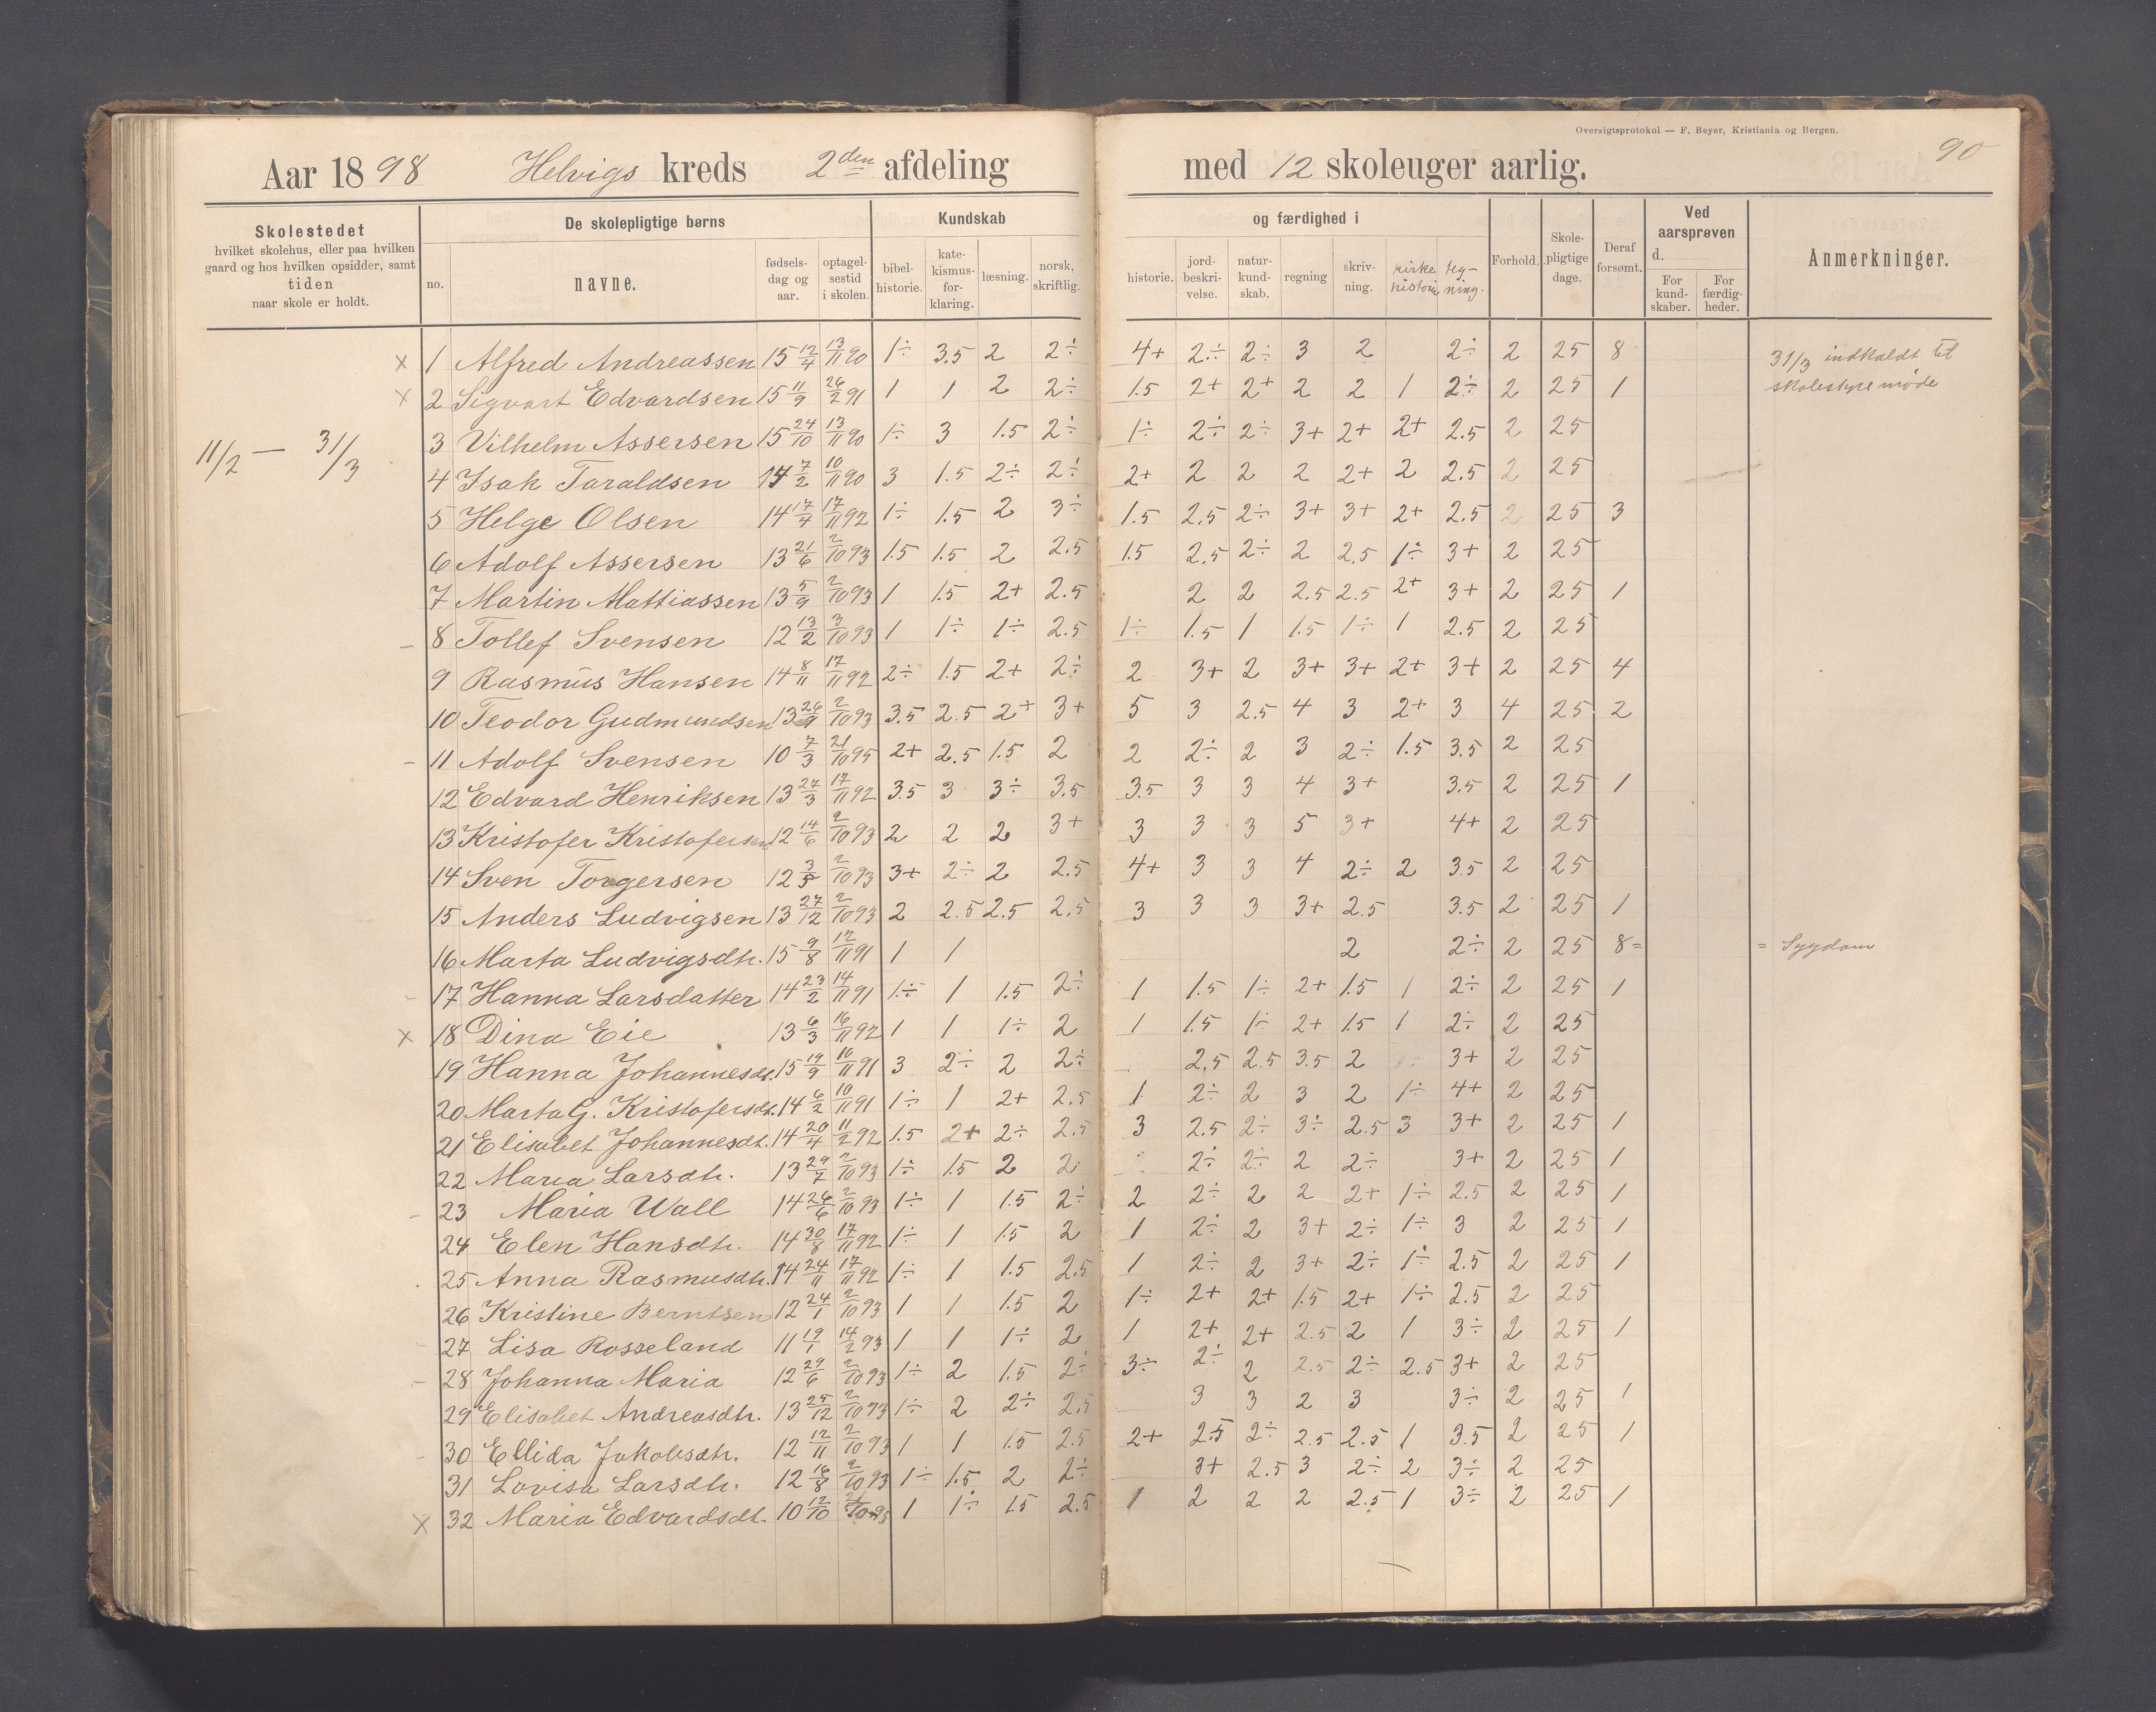 Oversigtsprotokol — F. Beyer, Kristiania og Bergen.
90
Aar 1898 Helvigs kreds 2den afdeling med 12 skoleuger aarlig.
Skolestedet hvilket skolehus, eller paa hvilken gaard og hos hvilken opsidder, samt tiden naar skole er holdt.
De skolepligtige børns
no. navne. fødsels-dag og aar. optagel-sestid i skolen.
Kundskab og færdighed i
bibel-historie. kate-kismus-for-klaring. læsning. norsk, skriftlig. historie. jord-beskri-velse. natur-kund-skab. regning skriv-ning. kirke historie teg-ning.
Forhold. Skole-pligtige dage. Deraf forsømt.
Ved aarsprøven d.
For kund-skaber. For færdig-heder.
Anmerkninger.
11/2 — 31/3
x 1 Alfred Andreassen 15 12/4 13/11 90 1÷ 3.5 2 2÷ 4+ 2÷ 2÷ 3 2 2÷ 2 25 8 31/3 indkaldt til
x 2 Sigvart Edvardsen 15 11/9 26/2 91 1 1 2 2÷ 1.5 2+ 2+ 2 2 1 2÷ 2 25 1 skolestyremøde
3 Vilhelm Assersen 15 24/10 13/11 90 1÷ 3 1.5 2÷ 1÷ 2÷ 2÷ 3+ 2+ 2+ 2.5 2 25
4 Isak Taraldsen 14 7/2 10/11 90 3 1.5 2÷ 2÷ 2+ 2 2 2 2+ 2 2.5 2 25
5 Helge Olsen 14 17/4 17/11 92 1÷ 1.5 2 3÷ 1.5 2.5 2÷ 3+ 3+ 2+ 2.5 2 25 3
6 Adolf Assersen 13 21/6 2/10 93 1.5 1.5 2 2.5 1.5 2.5 2÷ 2 2.5 1÷ 3+ 2 25
7 Martin Mattiassen 13 5/9 2/10 93 1 1.5 2+ 2.5 2 2 2.5 2.5 2+ 3+ 2 25 1
– 8 Tollef Svensen 12 13/2 3/10 93 1 1÷ 1÷ 2.5 1÷ 1.5 1 1.5 1÷ 1 2.5 2 25
9 Rasmus Hansen 14 8/11 17/11 92 2÷ 1.5 2+ 2÷ 2 3+ 2 3+ 3+ 2+ 3+ 2 25 4
10 Teodor Gudmundsen 13 26/9 2/10 93 3.5 2.5 2+ 3+ 5 3 2.5 4 3 2+ 3 4 25 2
– 11 Adolf Svensen 10 7/3 21/10 95 2+ 2.5 1.5 2 2 2÷ 2 3 2÷ 1.5 3.5 2 25
12 Edvard Henriksen 13 27/3 17/11 92 3.5 3 3÷ 3.5 3.5 3 3 4 3+ 3.5 2 25 1
13 Kristofer Kristofersen 12 14/6 2/10 93 2 2 2 3+ 3 3 3 5 3+ 4+ 2 25
14 Sven Torgersen 12 3/5 2/10 93 3+ 2÷ 2 2.5 4+ 3 3 4 2÷ 2 3.5 2 25
15 Anders Ludvigsen 13 27/12 2/10 93 2 2.5 2.5 2.5 3 3 3 3+ 2.5 3.5 2 25 1
16 Marta Ludvigsdtr. 15 9/8 12/11 91 1 1 2 2÷ 2 25 8= = Sygdom
– 17 Hanna Larsdatter 14 23/2 14/11 91 1÷ 1 1.5 2÷ 1 1.5 1÷ 2+ 1.5 1 2÷ 2 25 1
x 18 Dina Eie 13 6/3 16/11 92 1 1 1÷ 2 1 1.5 1÷ 2+ 1.5 1 2÷ 2 25
19 Hanna Johannesdt. 15 19/9 10/11 91 3 2÷ 2 2÷ 2.5 2.5 3.5 2 3+ 2 25
20 Marta G. Kristofersdt. 14 6/2 10/11 91 1÷ 1 2+ 2.5 1 2÷ 2 3 2 1÷ 4+ 2 25
21 Elisabet Johannesdt. 14 20/4 11/2 92 1.5 2+ 2÷ 2.5 3 2.5 2÷ 3÷ 2.5 3 3+ 2 25 1
22 Maria Larsdtr. 13 29/7 2/10 93 1÷ 1.5 2 2 2÷ 2÷ 2 2÷ 3+ 2 25 1
– 23 Maria Wall 14 26/6 2/10 93 1÷ 1 1.5 2÷ 2 2÷ 2 2 2+ 1÷ 2.5 2 25 1
24 Elen Hansdtr. 14 30/8 17/11 92 1÷ 1 1.5 2 1 2÷ 2 3+ 2÷ 1÷ 3 2 25 1
25 Anna Rasmusdtr. 14 24/11 17/11 92 1÷ 1 1.5 2.5 1 2÷ 2 3+ 2÷ 1÷ 2.5 2 25 1
26 Kristine Berntsen 12 24/1 2/10 93 1 1 1.5 2 1÷ 2+ 2+ 1.5 2+ 1÷ 2.5 2 25
– 27 Lisa Rosseland 11 19/1 14/2 93 1 1 1÷ 2 1 2+ 2+ 2.5 2 1 3÷ 2 25 1
– 28 Johanna Maria 12 29/6 2/10 93 1÷ 2 1.5 2÷ 3÷ 2÷ 2 2.5 2÷ 2.5 3+ 2 25
29 Elisabet Andreasdtr. 13 25/12 2/10 93 1÷ 2 2÷ 2.5 3 3 2 3 3÷ 2 25 1
– 30 Ellida Jakobsdtr. 12 12/11 2/10 93 1 1 1.5 2.5 2+ 2.5 2÷ 2.5 2.5 1 3.5 2 25 1
31 Lovisa Larsdtr. 12 16/8 2/10 93 1÷ 1.5 2 2÷ 3+ 2.5 3 2÷ 2 3÷ 2 25
x 32 Maria Edvardsdt. 10 12/10 95 1 1÷ 1.5 2.5 1 2 2 2 2.5 1 3÷ 2 25 1